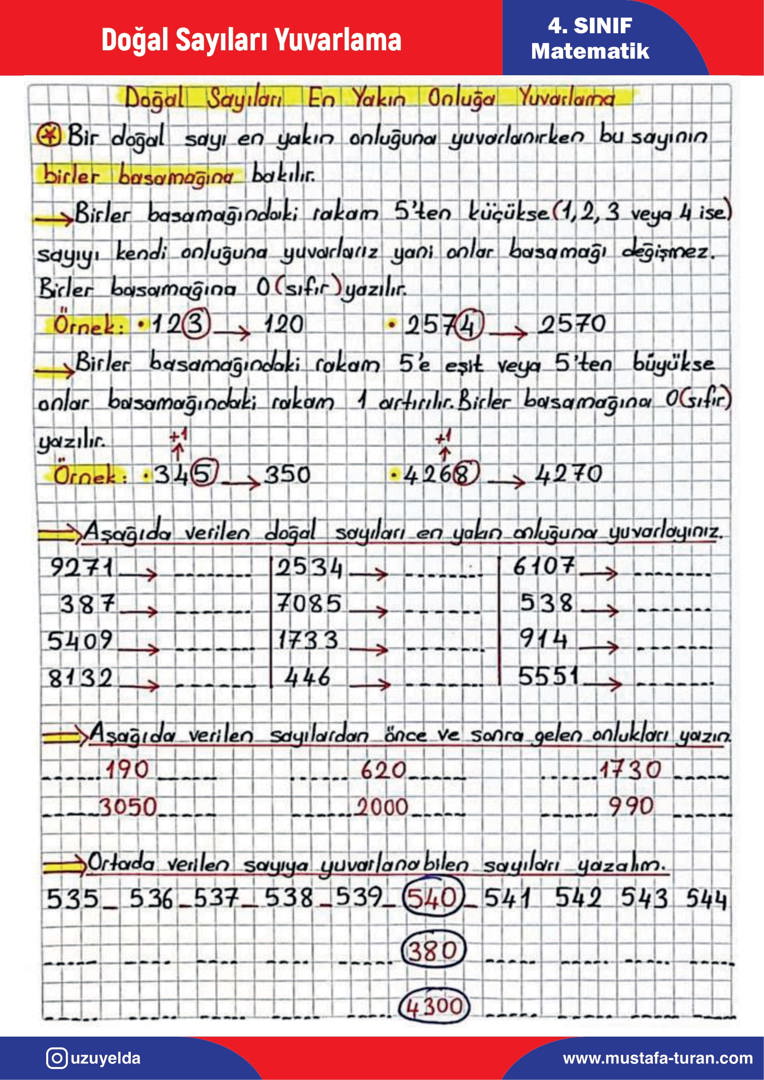 Doğal Sayıları Yuvarlama
4. SINIF
Matematik
Doğal Sayıları En Yakın Onluğa Yuvarlama
* Bir doğal sayı en yakın onluğuna yuvarlanırken bu sayının
birler basamağına bakılır.
→ Birler basamağındaki rakam 5'ten küçükse (1, 2, 3 veya 4 ise)
sayıyı kendi onluğuna yuvarlarız yani onlar basamağı değişmez.
Birler basamağına 0 (sıfır) yazılır.
Örnek: • 123 → 120 • 2574 → 2570
→ Birler basamağındaki rakam 5'e eşit veya 5'ten büyükse
onlar basamağındaki rakam 1 artırılır. Birler basamağına 0 (sıfır)
yazılır.
+1 +1
Örnek: • 345 → 350 • 4268 → 4270
⇒ Aşağıda verilen doğal sayıları en yakın onluğuna yuvarlayınız.
9271 → -------- 2534 → -------- 6107 → --------
387 → -------- 7085 → -------- 538 → --------
5409 → -------- 1733 → -------- 914 → --------
8132 → -------- 446 → -------- 5551 → --------
⇒ Aşağıda verilen sayılardan önce ve sonra gelen onlukları yazın.
------ 190 ------ ------ 620 ------ ------ 1730 ------
------ 3050 ------ ------ 2000 ------ ------ 990 ------
⇒ Ortada verilen sayıya yuvarlanabilen sayıları yazalım.
535 _ 536 _ 537 _ 538 _ 539 _ 540 _ 541 542 543 544
----- ----- ----- ----- ----- 380 ----- ----- ----- -----
----- ----- ----- ----- ----- 4300 ----- ----- ----- -----
uzuyelda
www.mustafa-turan.com